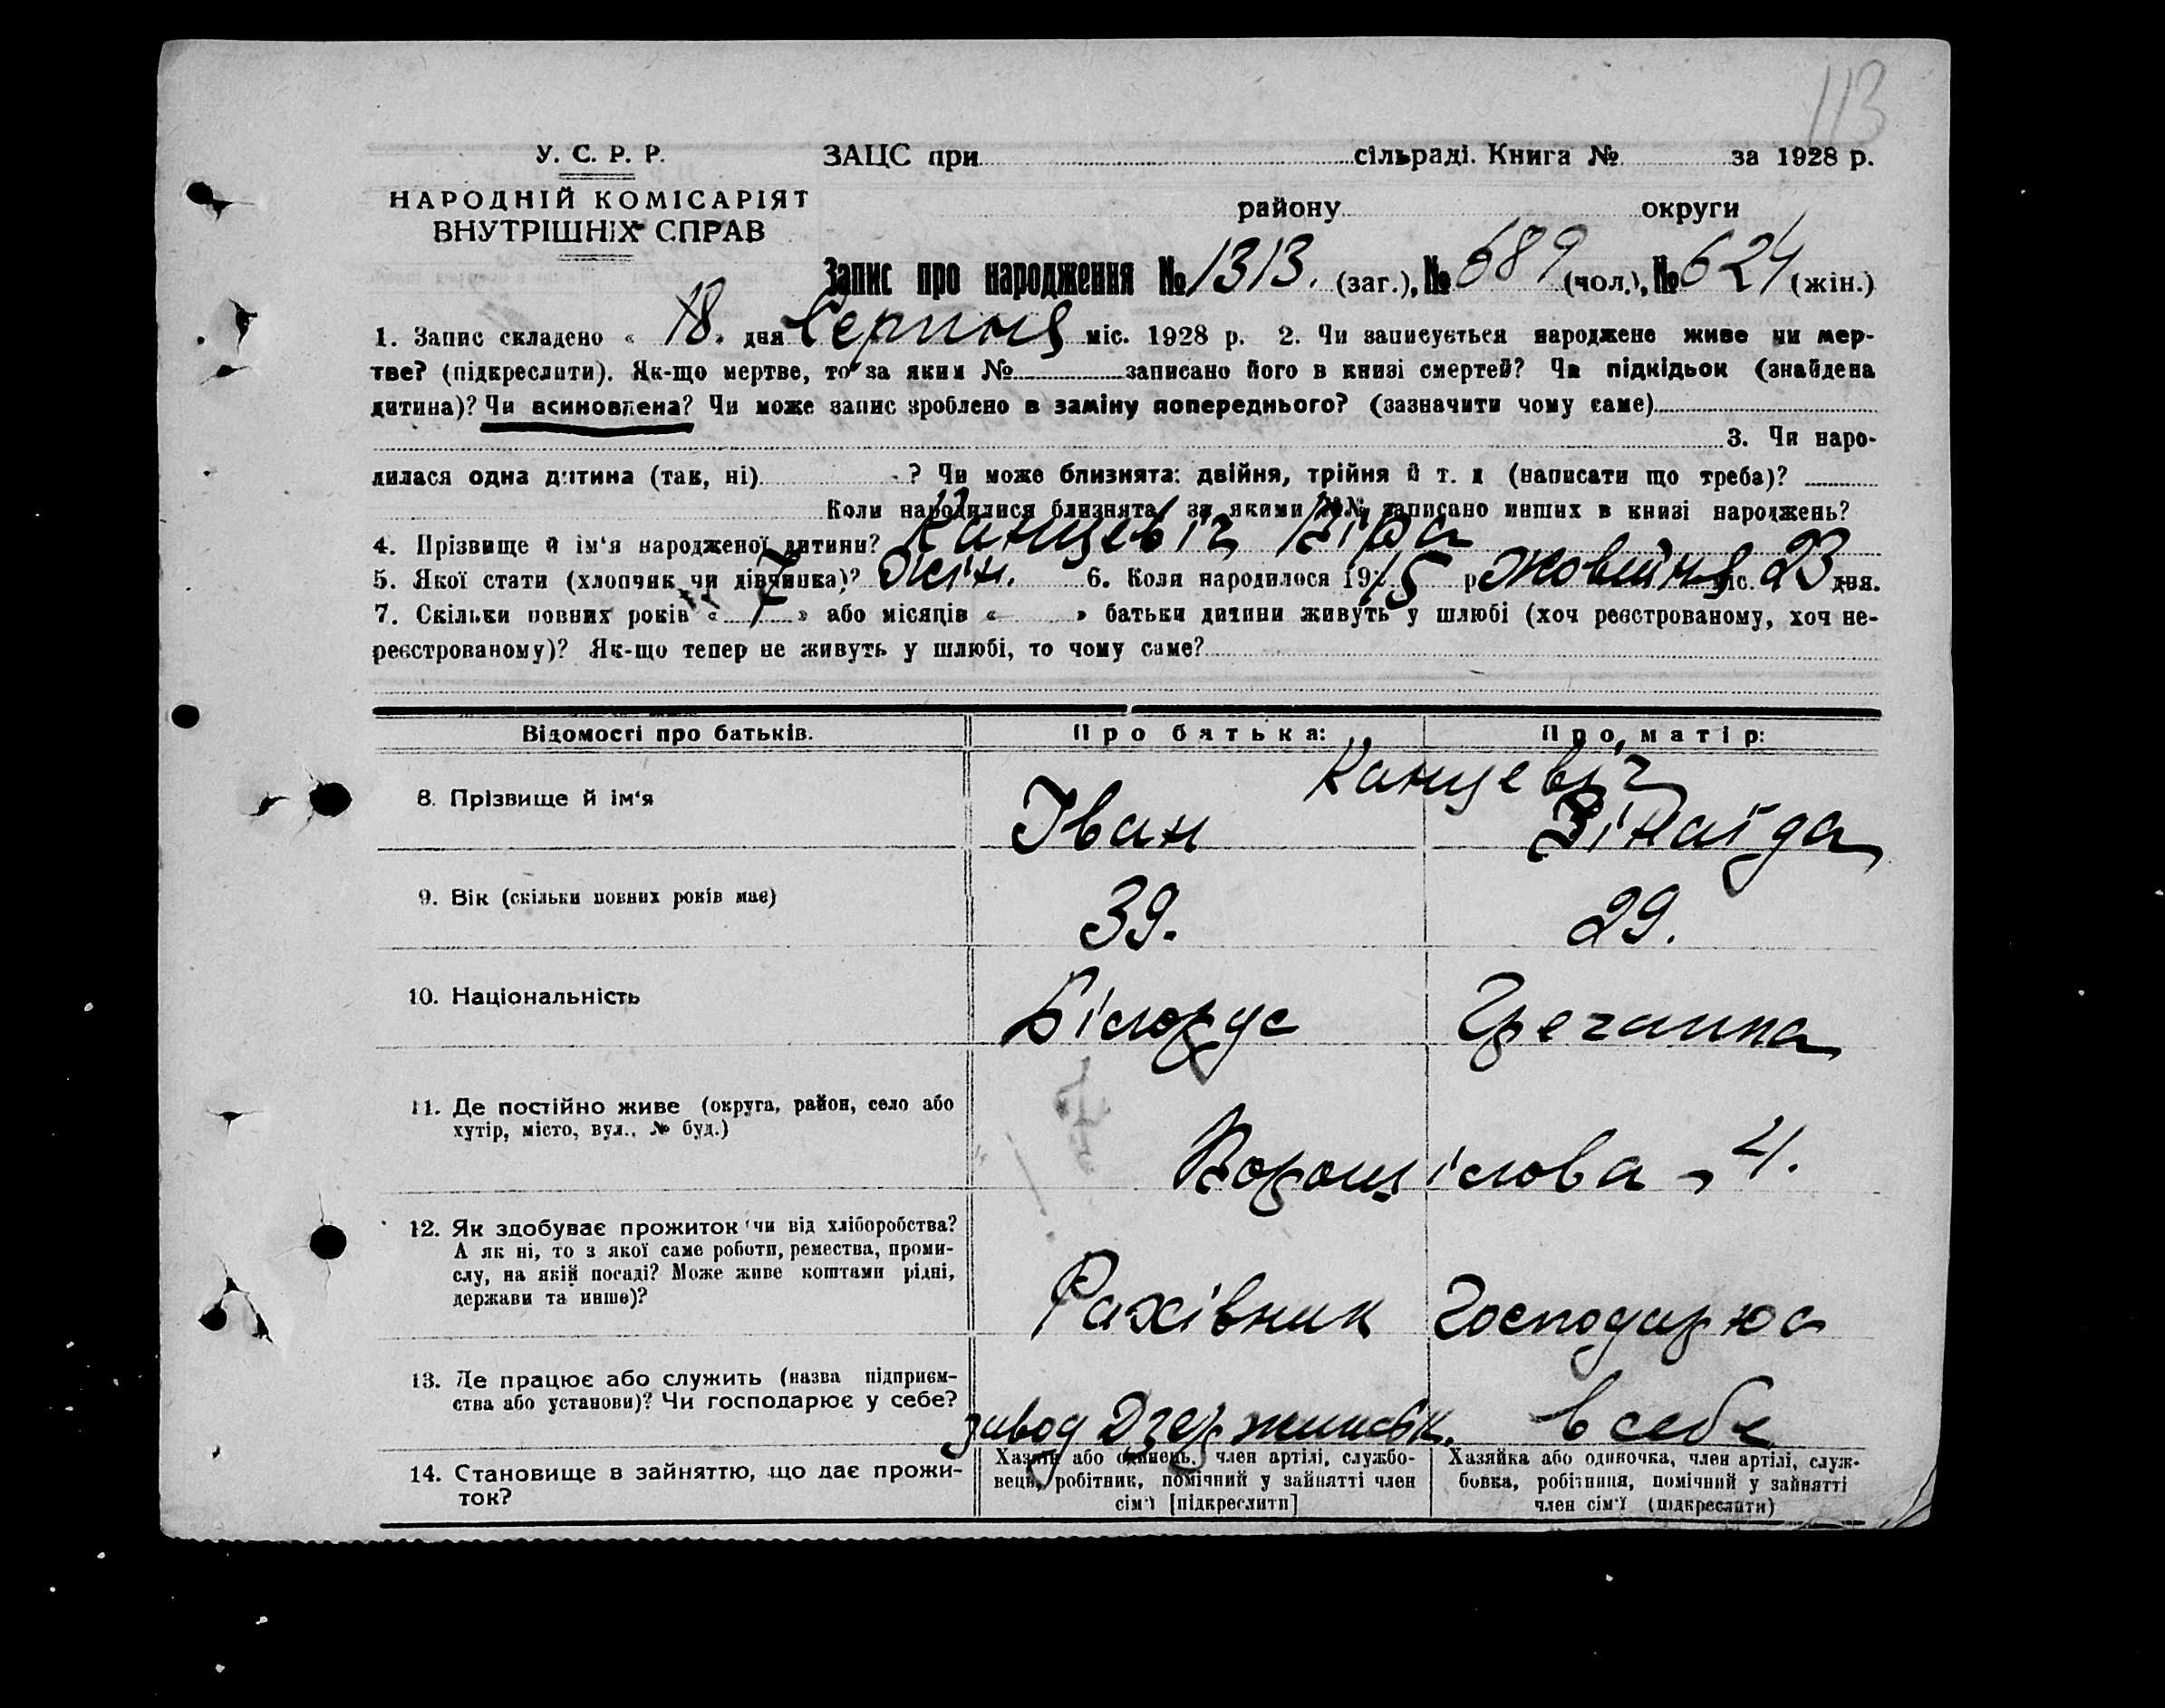 113
У. С. Р. Р.
НАРОДНІЙ КОМІСАРІЯТ
ВНУТРІШНІХ СПРАВ
ЗАЦС при сільраді. Книга № за 1928 р.
району округи
Запис про народження № 1313. (заг.), № 689 (чол.), № 624 (жін.)
1. Запис складено « 18. дня Серпня міс. 1928 р. 2. Чи записується народжене живе чи мер-
тве? (підкреслити). Як-що мертве, то за яким № записано його в книзі смертей? Чи підкідьок (знайдена
дитина)? Чи всиновлена? Чи може запис зроблено в заміну попереднього? (зазначити чому саме)
3. Чи наро-
дилася одна дитина (так, ні) ? Чи може близнята: двійня, трійня й т. д (написати що треба)?
Коли народилися близнята, за якими №№ записано инших в книзі народжень?
4. Прізвище й ім'я народженої дитини? Канцевіч
5. Якої стати (хлопчик чи дівчинка)? Жін. 6. Коли народилося 1915 р Жовтня міс. 23 дня.
7. Скільки повних років « 7 » або місяців « » батьки дитини живуть у шлюбі (хоч реєстрованому, хоч не-
реєстрованому)? Як-що тепер не живуть у шлюбі, то чому саме?
Відомості про батьків. Про батька: Про матір:
Канцевіч
8. Прізвище й ім'я Іван Зінаїда
9. Вік (скільки повних років має) 39. 29.
10. Національність Білорус Гречанка
11. Де постійно живе (округа, район, село або
хутір, місто, вул., № буд.)
Ворошілова - 4.
12. Як здобуває прожиток чи від хліборобства?
А як ні, то з якої саме роботи, ремества, проми-
слу, на якій посаді? Може живе коштами рідні,
держави та инше)?
Рахівник Господарює
13. Де працює або служить (назва підприєм-
ства або установи)? Чи господарює у себе?
завод Дзержинськ. в себе
14. Становище в зайняттю, що дає прожи-
ток?
Хазяїн або одинець, член артілі, службо-
вець, робітник, помічний у зайнятті член
сім'ї [підкреслити]
Хазяйка або одиночка, член артілі, служ-
бовка, робітниця, помічний у зайнятті
член сім'ї (підкреслити)